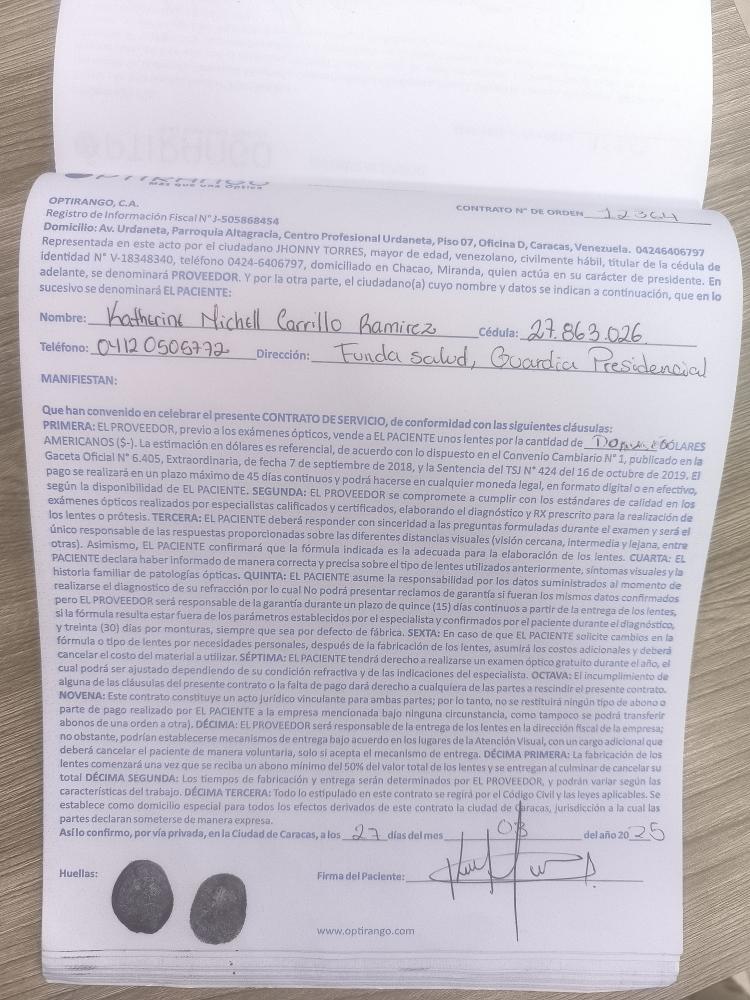 MÁS QUE UNA ÓPTICA
OPTIRANGO, C.A.
CONTRATO N° DE ORDEN
Registro de Información Fiscal N° J-505868454
Domicilio: Av. Urdaneta, Parroquia Altagracia, Centro Profesional Urdaneta, Piso 07, Oficina D, Caracas, Venezuela. 04246406797
Representada en este acto por el ciudadano JHONNY TORRES, mayor de edad, venezolano, civilmente hábil, titular de la cédula de
identidad N° V-18348340, teléfono 0424-6406797, domiciliado en Chacao, Miranda, quien actúa en su carácter de presidente. En
adelante, se denominará PROVEEDOR. Y por la otra parte, el ciudadano(a) cuyo nombre y datos se indican a continuación, que en lo
sucesivo se denominará EL PACIENTE:
Nombre: Katherine Nichell Carrillo Ramirez Cédula: 27.863.026
Teléfono: 0412 0505772 Dirección: Funda salud, Guardia Presidencial
MANIFIESTAN:
Que han convenido en celebrar el presente CONTRATO DE SERVICIO, de conformidad con las siguientes cláusulas:
PRIMERA: EL PROVEEDOR, previo a los exámenes ópticos, vende a EL PACIENTE unos lentes por la cantidad de DÓLARES
AMERICANOS ($-). La estimación en dólares es referencial, de acuerdo con lo dispuesto en el Convenio Cambiario N° 1, publicado en la
Gaceta Oficial N° 6.405, Extraordinaria, de fecha 7 de septiembre de 2018, y la Sentencia del TSJ N° 424 del 16 de octubre de 2019. El
pago se realizará en un plazo máximo de 45 días continuos y podrá hacerse en cualquier moneda legal, en formato digital o en efectivo,
según la disponibilidad de EL PACIENTE. SEGUNDA: EL PROVEEDOR se compromete a cumplir con los estándares de calidad en los
exámenes ópticos realizados por especialistas calificados y certificados, elaborando el diagnóstico y RX prescrito para la realización de
los lentes o prótesis. TERCERA: EL PACIENTE deberá responder con sinceridad a las preguntas formuladas durante el examen y será el
único responsable de las respuestas proporcionadas sobre las diferentes distancias visuales (visión cercana, intermedia y lejana, entre
otras). Asimismo, EL PACIENTE confirmará que la fórmula indicada es la adecuada para la elaboración de los lentes. CUARTA: EL
PACIENTE declara haber informado de manera correcta y precisa sobre el tipo de lentes utilizados anteriormente, síntomas visuales y la
historia familiar de patologías ópticas. QUINTA: EL PACIENTE asume la responsabilidad por los datos suministrados al momento de
realizarse el diagnostico de su refracción por lo cual No podrá presentar reclamos de garantía si fueran los mismos datos confirmados
pero EL PROVEEDOR será responsable de la garantía durante un plazo de quince (15) días continuos a partir de la entrega de los lentes,
si la fórmula resulta estar fuera de los parámetros establecidos por el especialista y confirmados por el paciente durante el diagnóstico,
y treinta (30) días por monturas, siempre que sea por defecto de fábrica. SEXTA: En caso de que EL PACIENTE solicite cambios en la
fórmula o tipo de lentes por necesidades personales, después de la fabricación de los lentes, asumirá los costos adicionales y deberá
cancelar el costo del material a utilizar. SÉPTIMA: EL PACIENTE tendrá derecho a realizarse un examen óptico gratuito durante el año, el
cual podrá ser ajustado dependiendo de su condición refractiva y de las indicaciones del especialista. OCTAVA: El incumplimiento de
alguna de las cláusulas del presente contrato o la falta de pago dará derecho a cualquiera de las partes a rescindir el presente contrato.
NOVENA: Este contrato constituye un acto jurídico vinculante para ambas partes; por lo tanto, no se restituirá ningún tipo de abono o
parte de pago realizado por EL PACIENTE a la empresa mencionada bajo ninguna circunstancia, como tampoco se podrá transferir
abonos de una orden a otra). DÉCIMA: EL PROVEEDOR será responsable de la entrega de los lentes en la dirección fiscal de la empresa;
no obstante, podrían establecerse mecanismos de entrega bajo acuerdo en los lugares de la Atención Visual, con un cargo adicional que
deberá cancelar el paciente de manera voluntaria, solo si acepta el mecanismo de entrega. DÉCIMA PRIMERA: La fabricación de los
lentes comenzará una vez que se reciba un abono mínimo del 50% del valor total de los lentes y se entregan al culminar de cancelar su
total DÉCIMA SEGUNDA: Los tiempos de fabricación y entrega serán determinados por EL PROVEEDOR, y podrán variar según las
características del trabajo. DÉCIMA TERCERA: Todo lo estipulado en este contrato se regirá por el Código Civil y las leyes aplicables. Se
establece como domicilio especial para todos los efectos derivados de este contrato la ciudad de Caracas, jurisdicción a la cual las
partes declaran someterse de manera expresa.
Así lo confirmo, por vía privada, en la Ciudad de Caracas, a los 27 días del mes 03 del año 2025
Huellas:
Firma del Paciente:
www.optirango.com